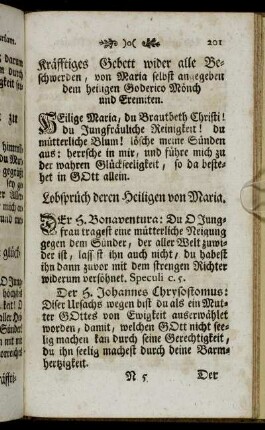 )o( 201
Kräfftiges Gebett wider alle Be-
schwerden, von Maria selbst angegeben
dem heiligen Goderico Mönch
und Eremiten.
HEilige Maria, du Brautbeth Christi!
du Jungfräuliche Reinigkeit! du
mütterliche Blum! lösche meine Sünden
aus: herrsche in mir, und führe mich zu
der wahren Glückseeligkeit, so da beste-
het in GOtt allein.
Lobsprüch deren Heiligen von Maria.
DEr H. Bonaventura: Du O Jung-
frau tragest eine mütterliche Neigung
gegen dem Sünder, der aller Welt zuwi-
der ist, lass'st ihn auch nicht, du habest
ihn dann zuvor mit dem strengen Richter
widerum versöhnet. Speculi c. 5.
Der H. Johannes Chrysostomus:
Diser Ursachs wegen bist du als ein Mut-
ter GOttes von Ewigkeit auserwählet
worden, damit, welchen GOtt nicht see-
lig machen kan durch seine Gerechtigkeit,
du ihn seelig machest durch deine Barm-
hertzigkeit.
N 5 Der